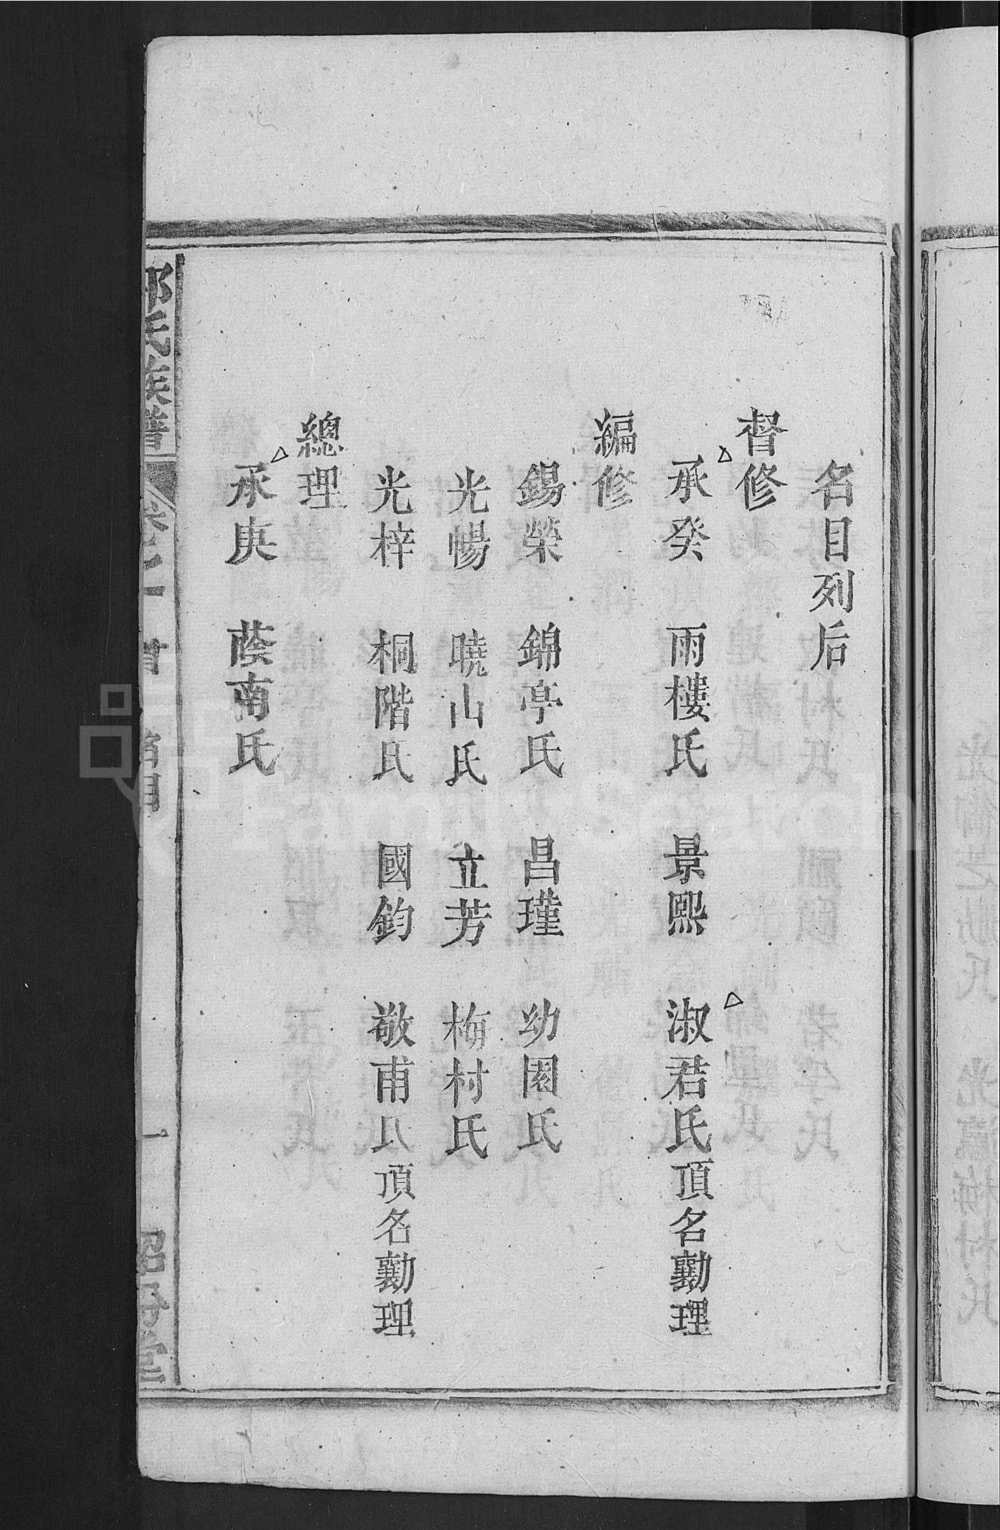 名目列后
督修
承癸 雨樓氏 景熙 淑君氏頂名勷理
編修
錫榮 錦亭氏 昌瑾 幼園氏
光暢 曉山氏 立芳 梅村氏
光梓 桐階氏 國鈞 敬甫氏頂名勷理
總理
承庚 蔭南氏
氏族譜 卷之一 首 名目 一